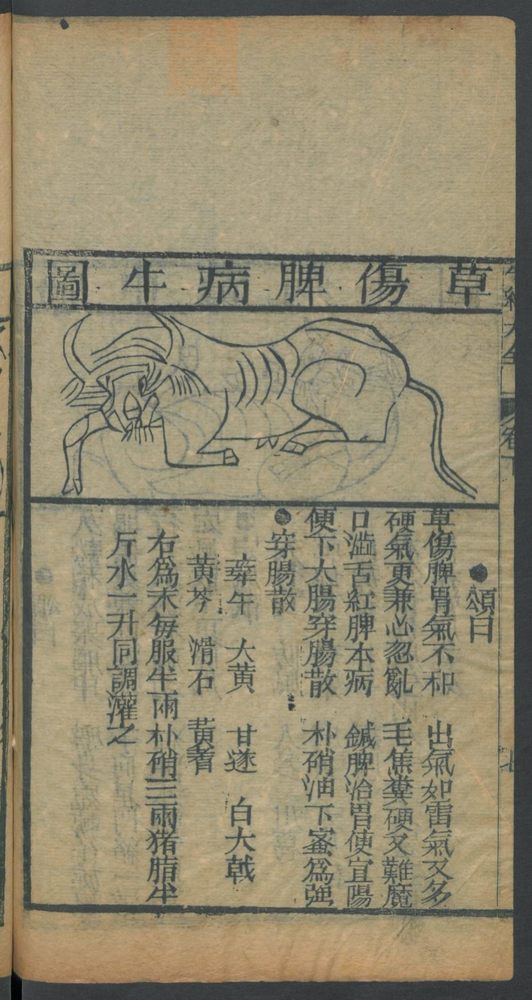 草傷脾病牛圖
頌曰
草傷脾胃氣不和　出氣如雷氣又多
硬氣更兼心忽亂　毛焦糞硬又難魔
口澁舌紅脾本病　鍼脾治胃使宜陽
便下大腸穿腸散　朴硝油下蜜爲強
穿腸散
牽牛　大黃　甘遂　白大戟
黃芩　滑石　黃耆
右爲末每服半兩朴硝三兩猪脂半
斤水一升同調灌之
七